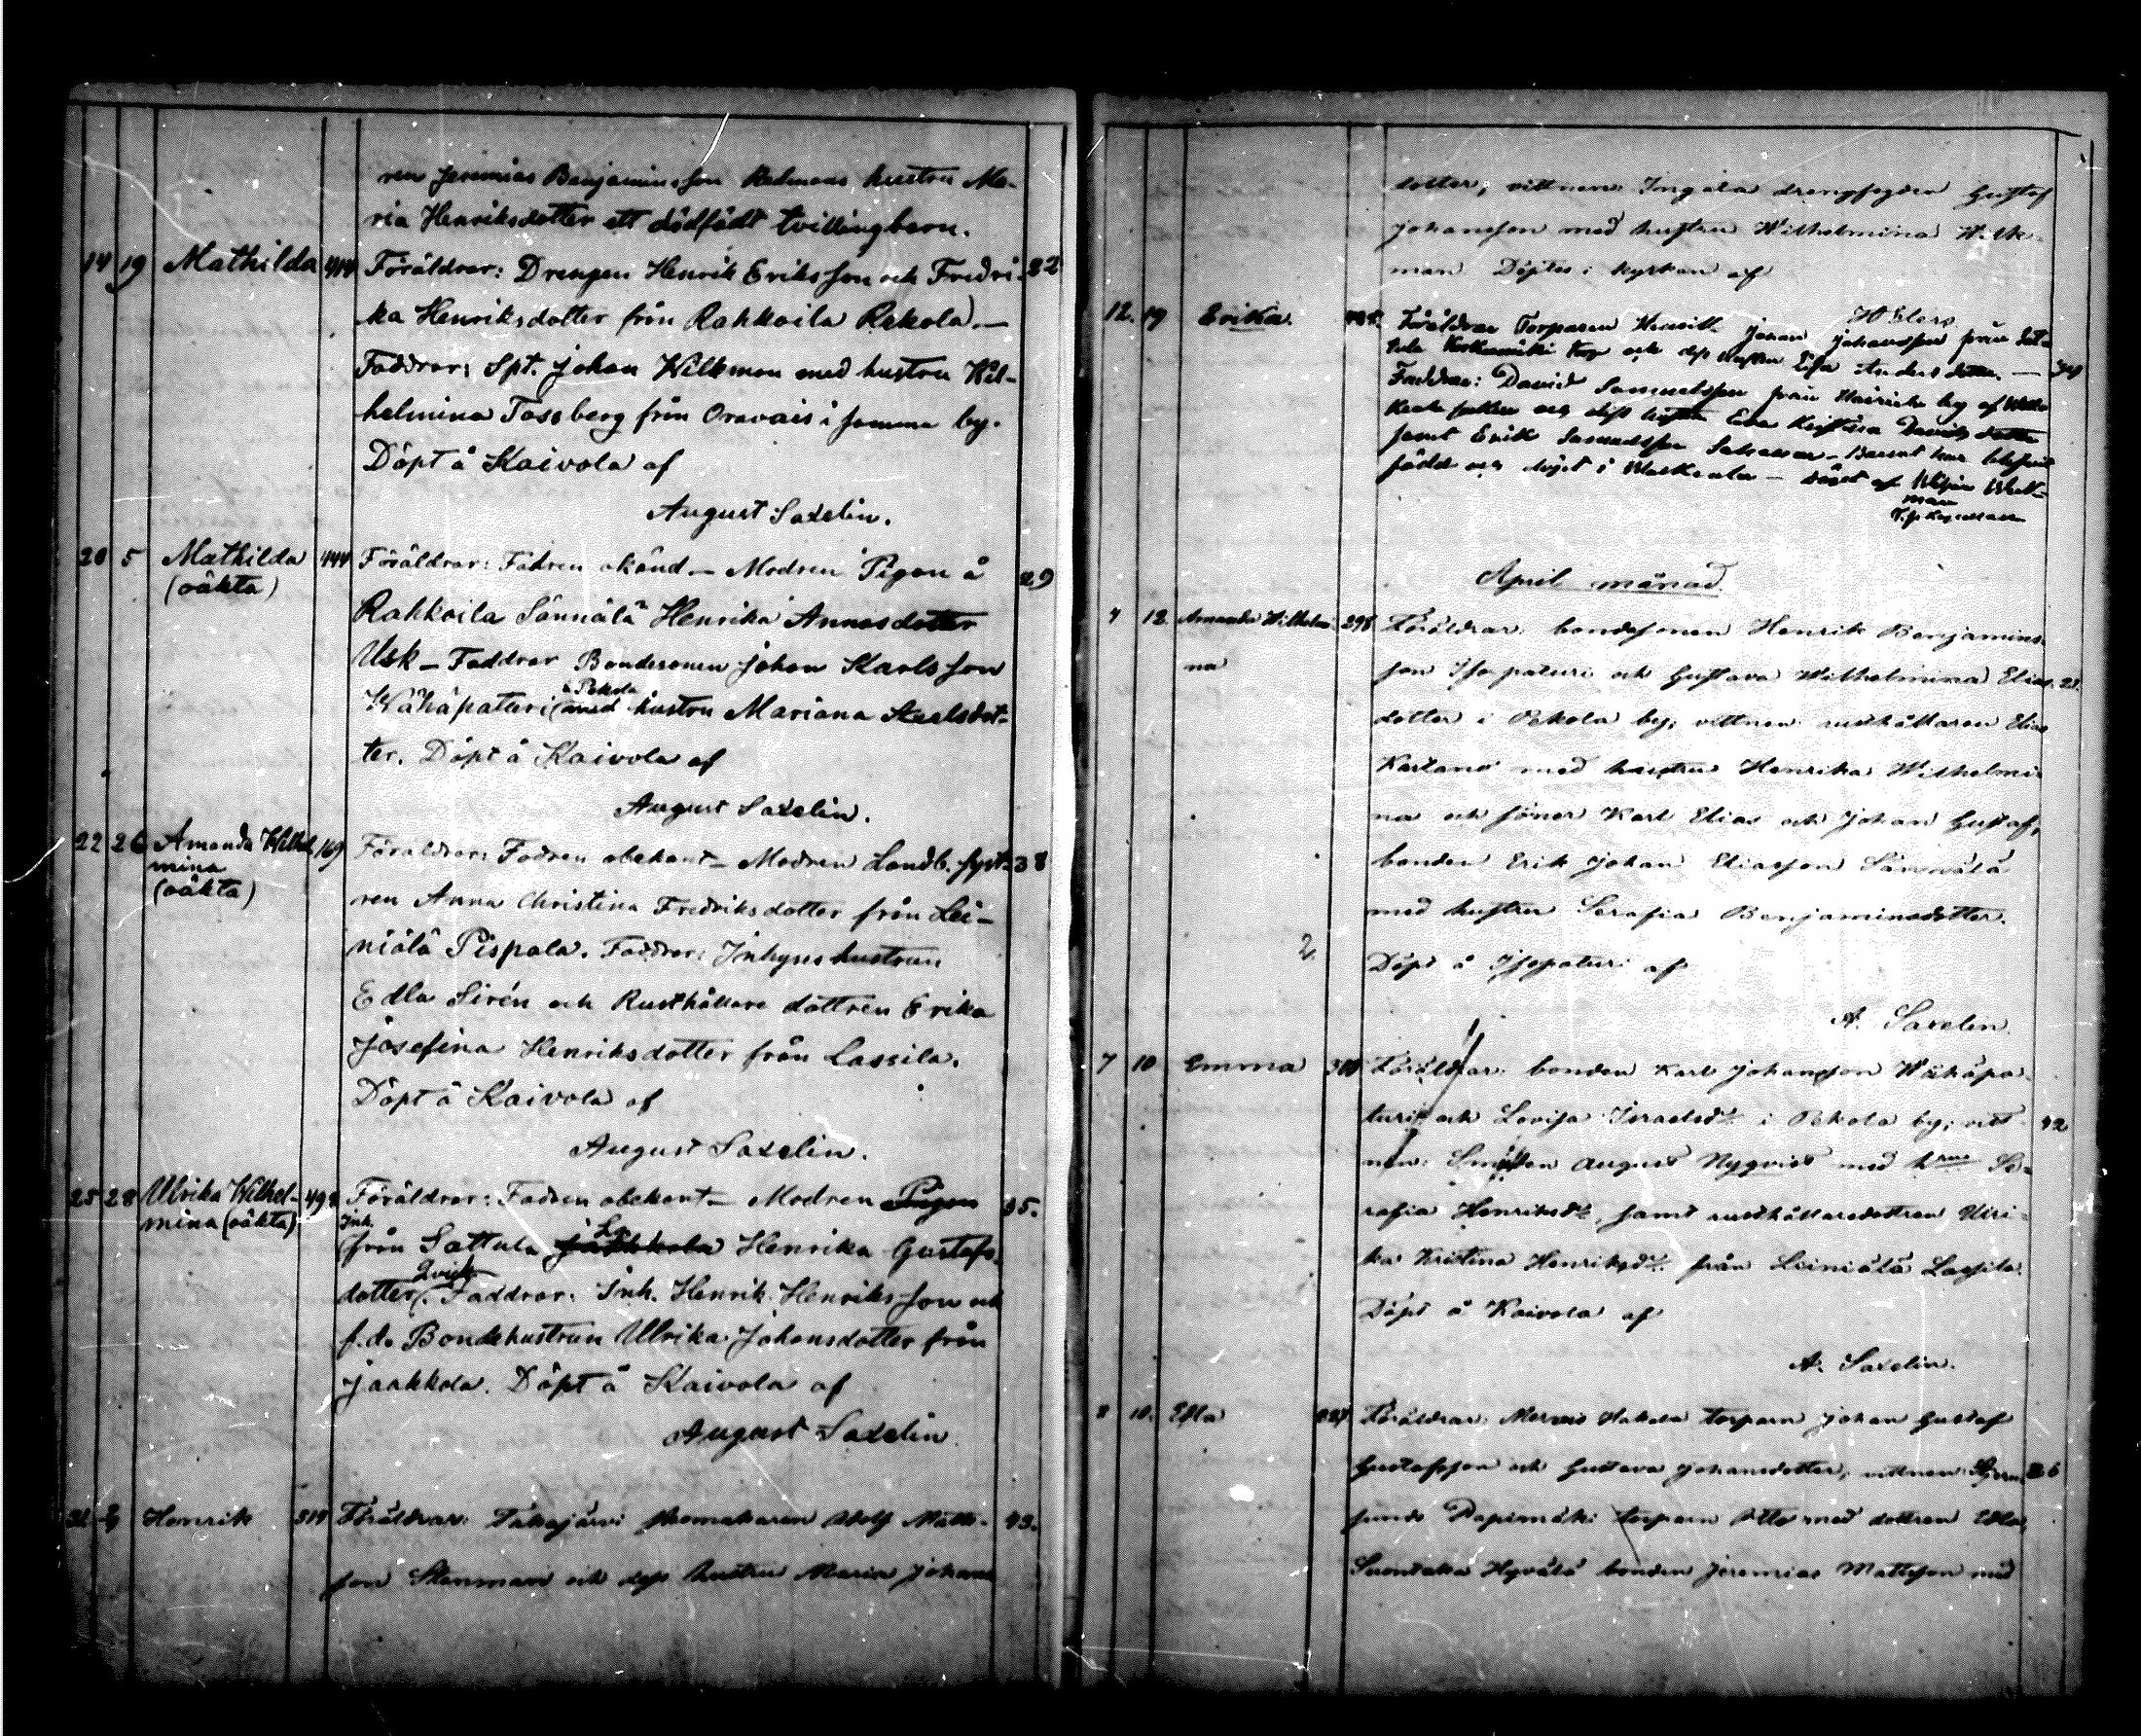 ren Jeremias Benjaminsson Redmans hustru Ma-
ria Henriksdotter ett dödfödt tvillingbarn.
14 19 Mathilda 414 Föräldrar: Drengen Henrik Eriksson och Fredri- 22
ka Henriksdotter från Rahkoila Rekola.—
Faddrar: Spt. Johan Wilkman med hustru Wil-
helmina Tassberg från Oravais i samma by.
Döpt å Kaivola af
August Saxelin.
20 5 Mathilda 444 Föräldrar: Fadren okänd — Modren Pigan å 29
(oäkta)
Rahkoila Sännälä Henrika Annasdotter
Usk — Faddrar Bondesonen Johan Karlsson
å Pekola
Wähäpaturi med hustru Mariana Axelsdot-
ter. Döpt å Kaivola af
August Saxelin.
22 26 Amanda Wilhel 169 Föräldrar: Fadren obekant — Modren Landb. syst- 38
mina
(oäkta)
ren Anna Christina Fredriksdotter från Lei-
niälä Pispala. Faddrar: Inhyses hustrun
Edla Sirén och Rusthållare dottren Erika
Josefina Henriksdotter från Lassila.
Döpt å Kaivola af
August Saxelin.
25 28 Ulrika Wilhel- 498 Föräldrar: Fadren obekant — Modren Pigan 35.
mina (oäkta)
Inh.
från Sattula Jaakkola Henrika Gustafs-
Qvick
dotter. Faddrar: Inh. Henrik Henriksson och
f.d. Bondehustrun Ulrika Johansdotter från
Jaakkola. Döpt å Kaivola af
August Saxelin
Henrik 319 Föräldrar: Takajärvi skomakaren Adolf Matts- 43.
son Stenman och dess hustru Maria Johans
dotter, vittnen: Ingala drengsyden Gustaf
Johansson med hustru Wilhelmina Wilk-
man Döptes i kyrkan af
12. 19 Erika. Föräldrar Torparen Johan Johansson från
torp och dess hustru Eva Anders dotter —
Faddrar: David Samuelsson från by af
och dess hustru Eva Kristina Davids dotter
samt Erik Samuelsson Barnet har blifvit
född och döpt i — döpt af
April månad
4 12 Amanda Wilhelmi- 298 Föräldrar: bondesonen Henrik Benjamins-
na
son Isopaturi och Gustava Wilhelmina Elias- 21.
dotter i Pekola by; vittnen rusthållaren Elias
Kartano med hustru Henrika Wilhelmi-
na och söner Karl Elias och Johan Gustaf,
bonden Erik Johan Eliasson Sännälä
med hustru Serafia Benjaminsdotter.
2
Döpt å Isopaturi af
A. Saxelin.
7 10 Emma Föräldrar: bonden Karl Johansson Wähäpa-
turi och Lovisa Israelsd:r i Pekola by; vitt- 42
nen: Smeden August Nyqvist med h:run Se-
rafia Henriksd:r, samt rusthållaredottren Ulri-
ka Kristina Henriksd:r från Leiniälä Lassila.
Döpt å Kaivola af
A. Saxelin.
8 10. Föräldrar: Hakola torparn Johan Gustaf
Gustafsson och Gustava Johansdotter, vittnen: 26
Papinmäki torparn Otto med dottren Edla,
Suontaka Hyvälä bonden Jeremias Mattsson med